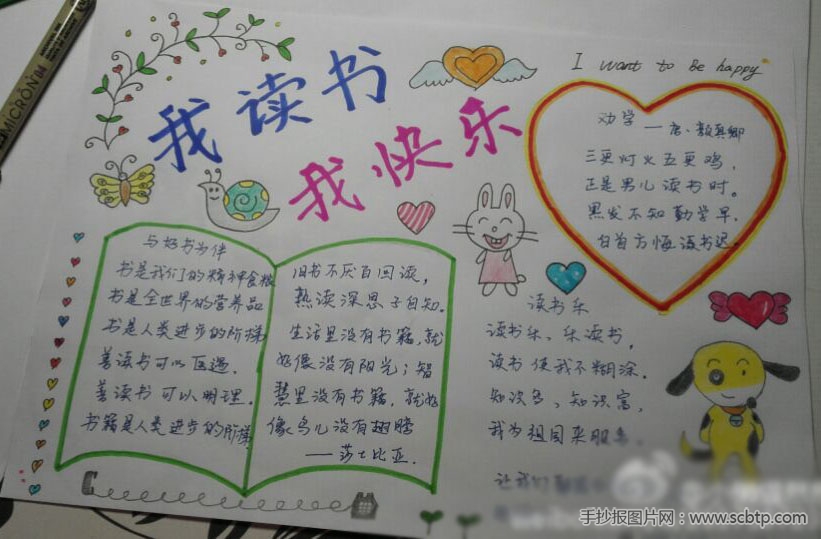 MICRON
我读书
我快乐
I want to be happy
劝学 — 唐、颜真卿
三更灯火五更鸡,
正是男儿读书时。
黑发不知勤学早,
白首方悔读书迟.
与好书为伴
书是我们的精神食粮
书是全世界的营养品
书是人类进步的阶梯
善读书可以医愚.
善读书可以明理.
书籍是人类进步的阶梯
旧书不厌百回读,
熟读深思子自知.
生活里没有书籍,就
好像没有阳光;智
慧里没有书籍,就好
像鸟儿没有翅膀
——莎士比亚.
读书乐
读书乐、乐读书,
读书使我不糊涂.
知识多、知识富,
我为祖国来服务.
让我们
手抄报图片网:www.scbtp.com